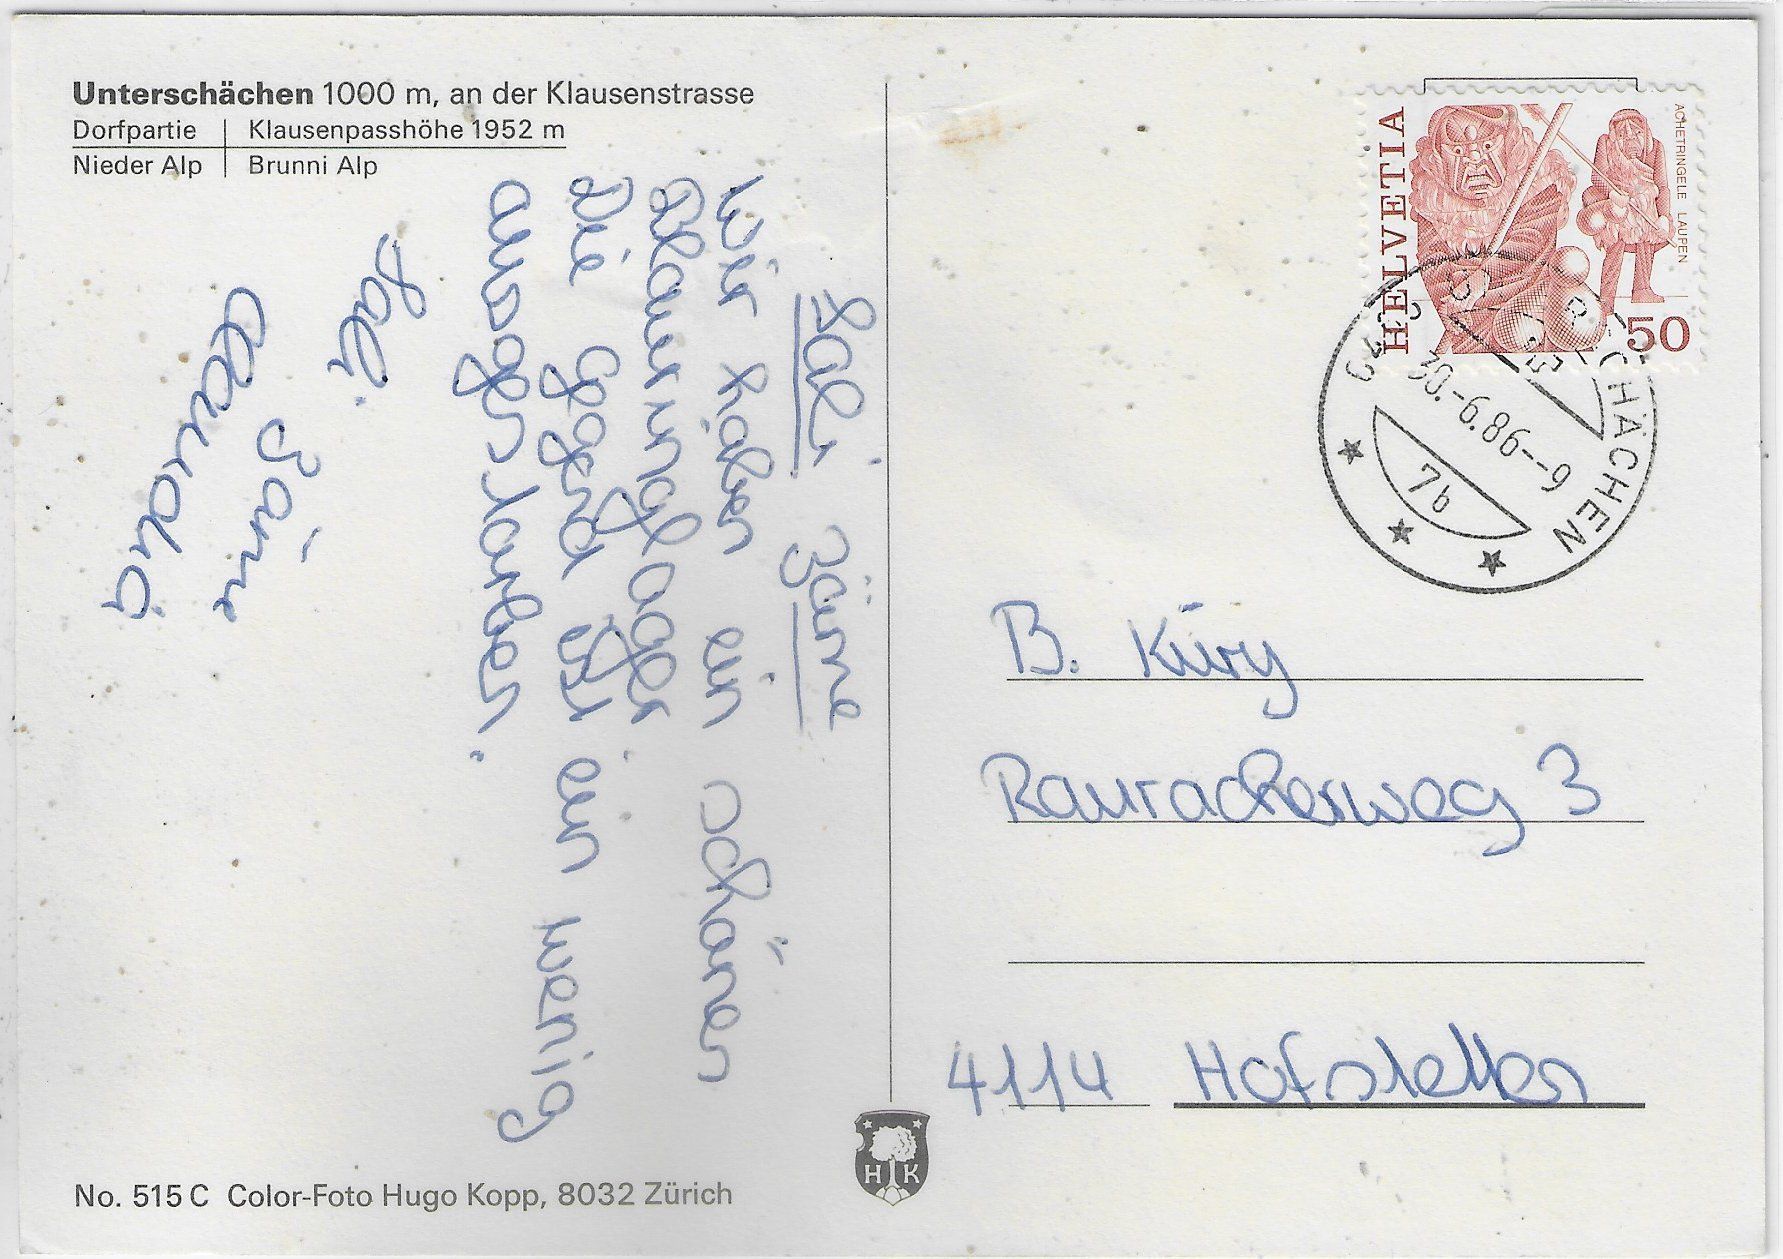 Unterschächen 1000 m, an der Klausenstrasse
Dorfpartie | Klausenpasshöhe 1952 m
Nieder Alp | Brunni Alp
Sali zäme
Wir haben ein schönes
Blauringlager
Die Gegend ist ein wenig
ausgestorben.
Sali zäme
Claudia
No. 515 C Color-Foto Hugo Kopp, 8032 Zürich
HK
HELVETIA
ACHETRINGELE LAUPEN
50
30.-6.86--9
7b
B. Küry
Raurackerweg 3
4114 Hofstetten